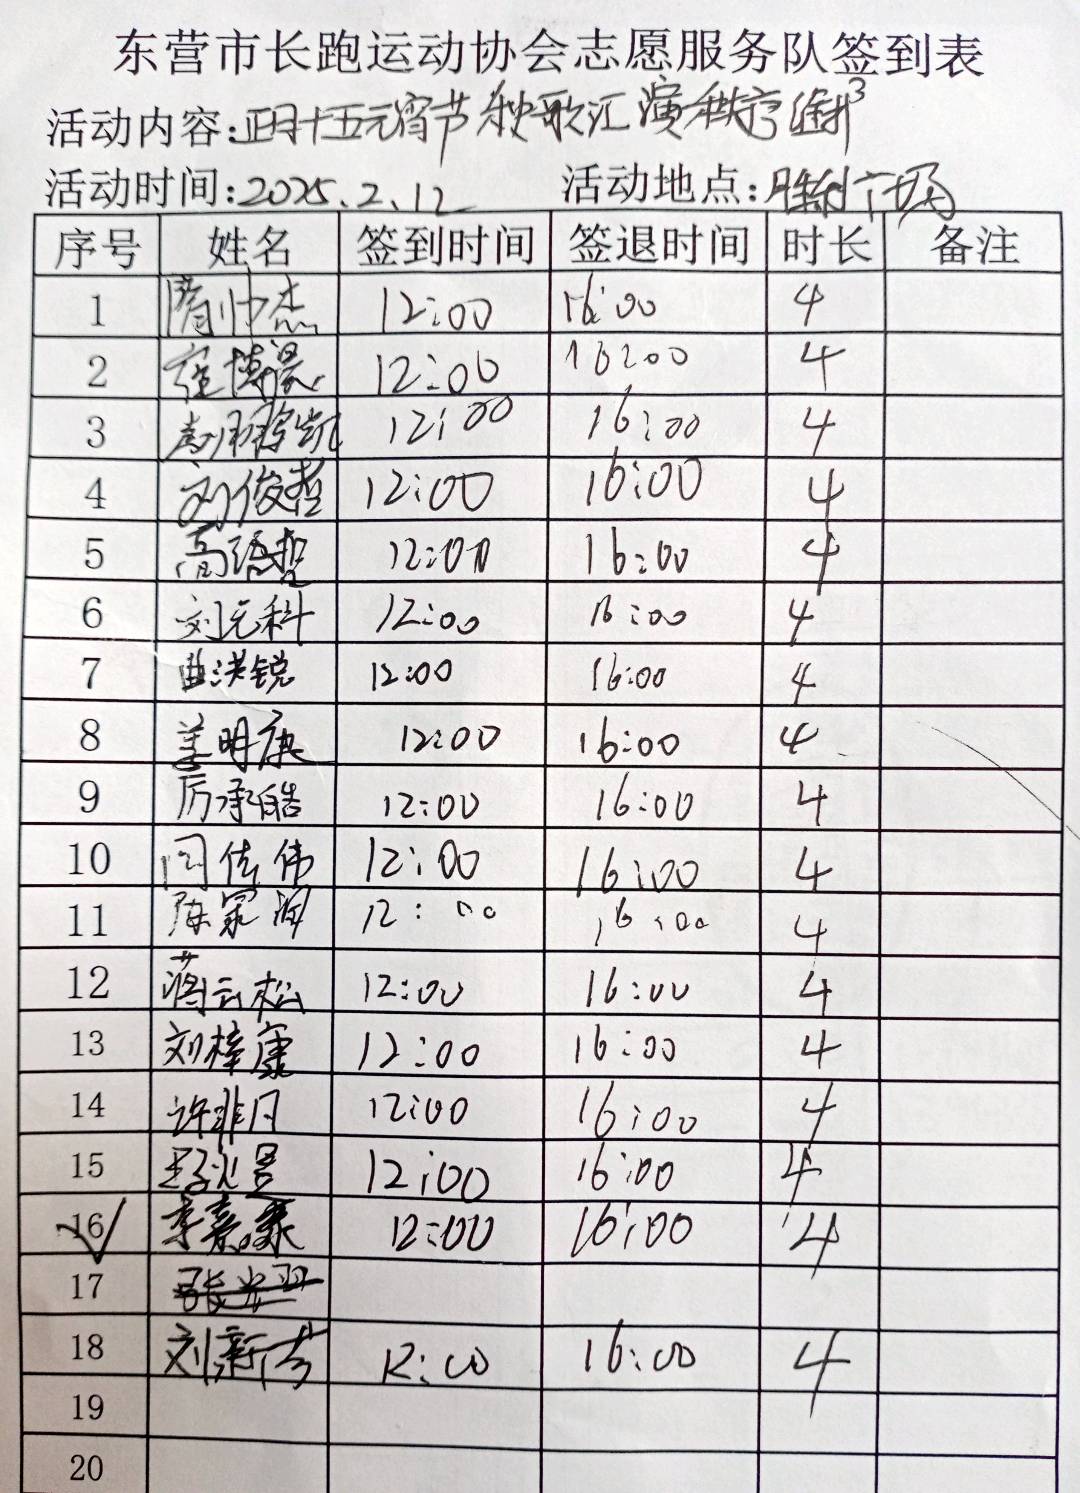 东营市长跑运动协会志愿服务队签到表
活动内容:正月十五元宵节秧歌汇演秩序维护
活动时间:2025.2.12 活动地点:胜利广场
序号 姓名 签到时间 签退时间 时长 备注
1 隋帅杰 12:00 16:00 4
2 12:00 16:00 4
3 12:00 16:00 4
4 刘俊哲 12:00 16:00 4
5 高语哲 12:00 16:00 4
6 刘元科 12:00 16:00 4
7 曲洪锐 12:00 16:00 4
8 姜明康 12:00 16:00 4
9 厉承皓 12:00 16:00 4
10 闫佳伟 12:00 16:00 4
11 陈家润 12:00 16:00 4
12 蒋云松 12:00 16:00 4
13 刘梓康 12:00 16:00 4
14 许非凡 12:00 16:00 4
15 12:00 16:00 4
16 李嘉康 12:00 16:00 4
17
18 刘新涛 12:00 16:00 4
19
20